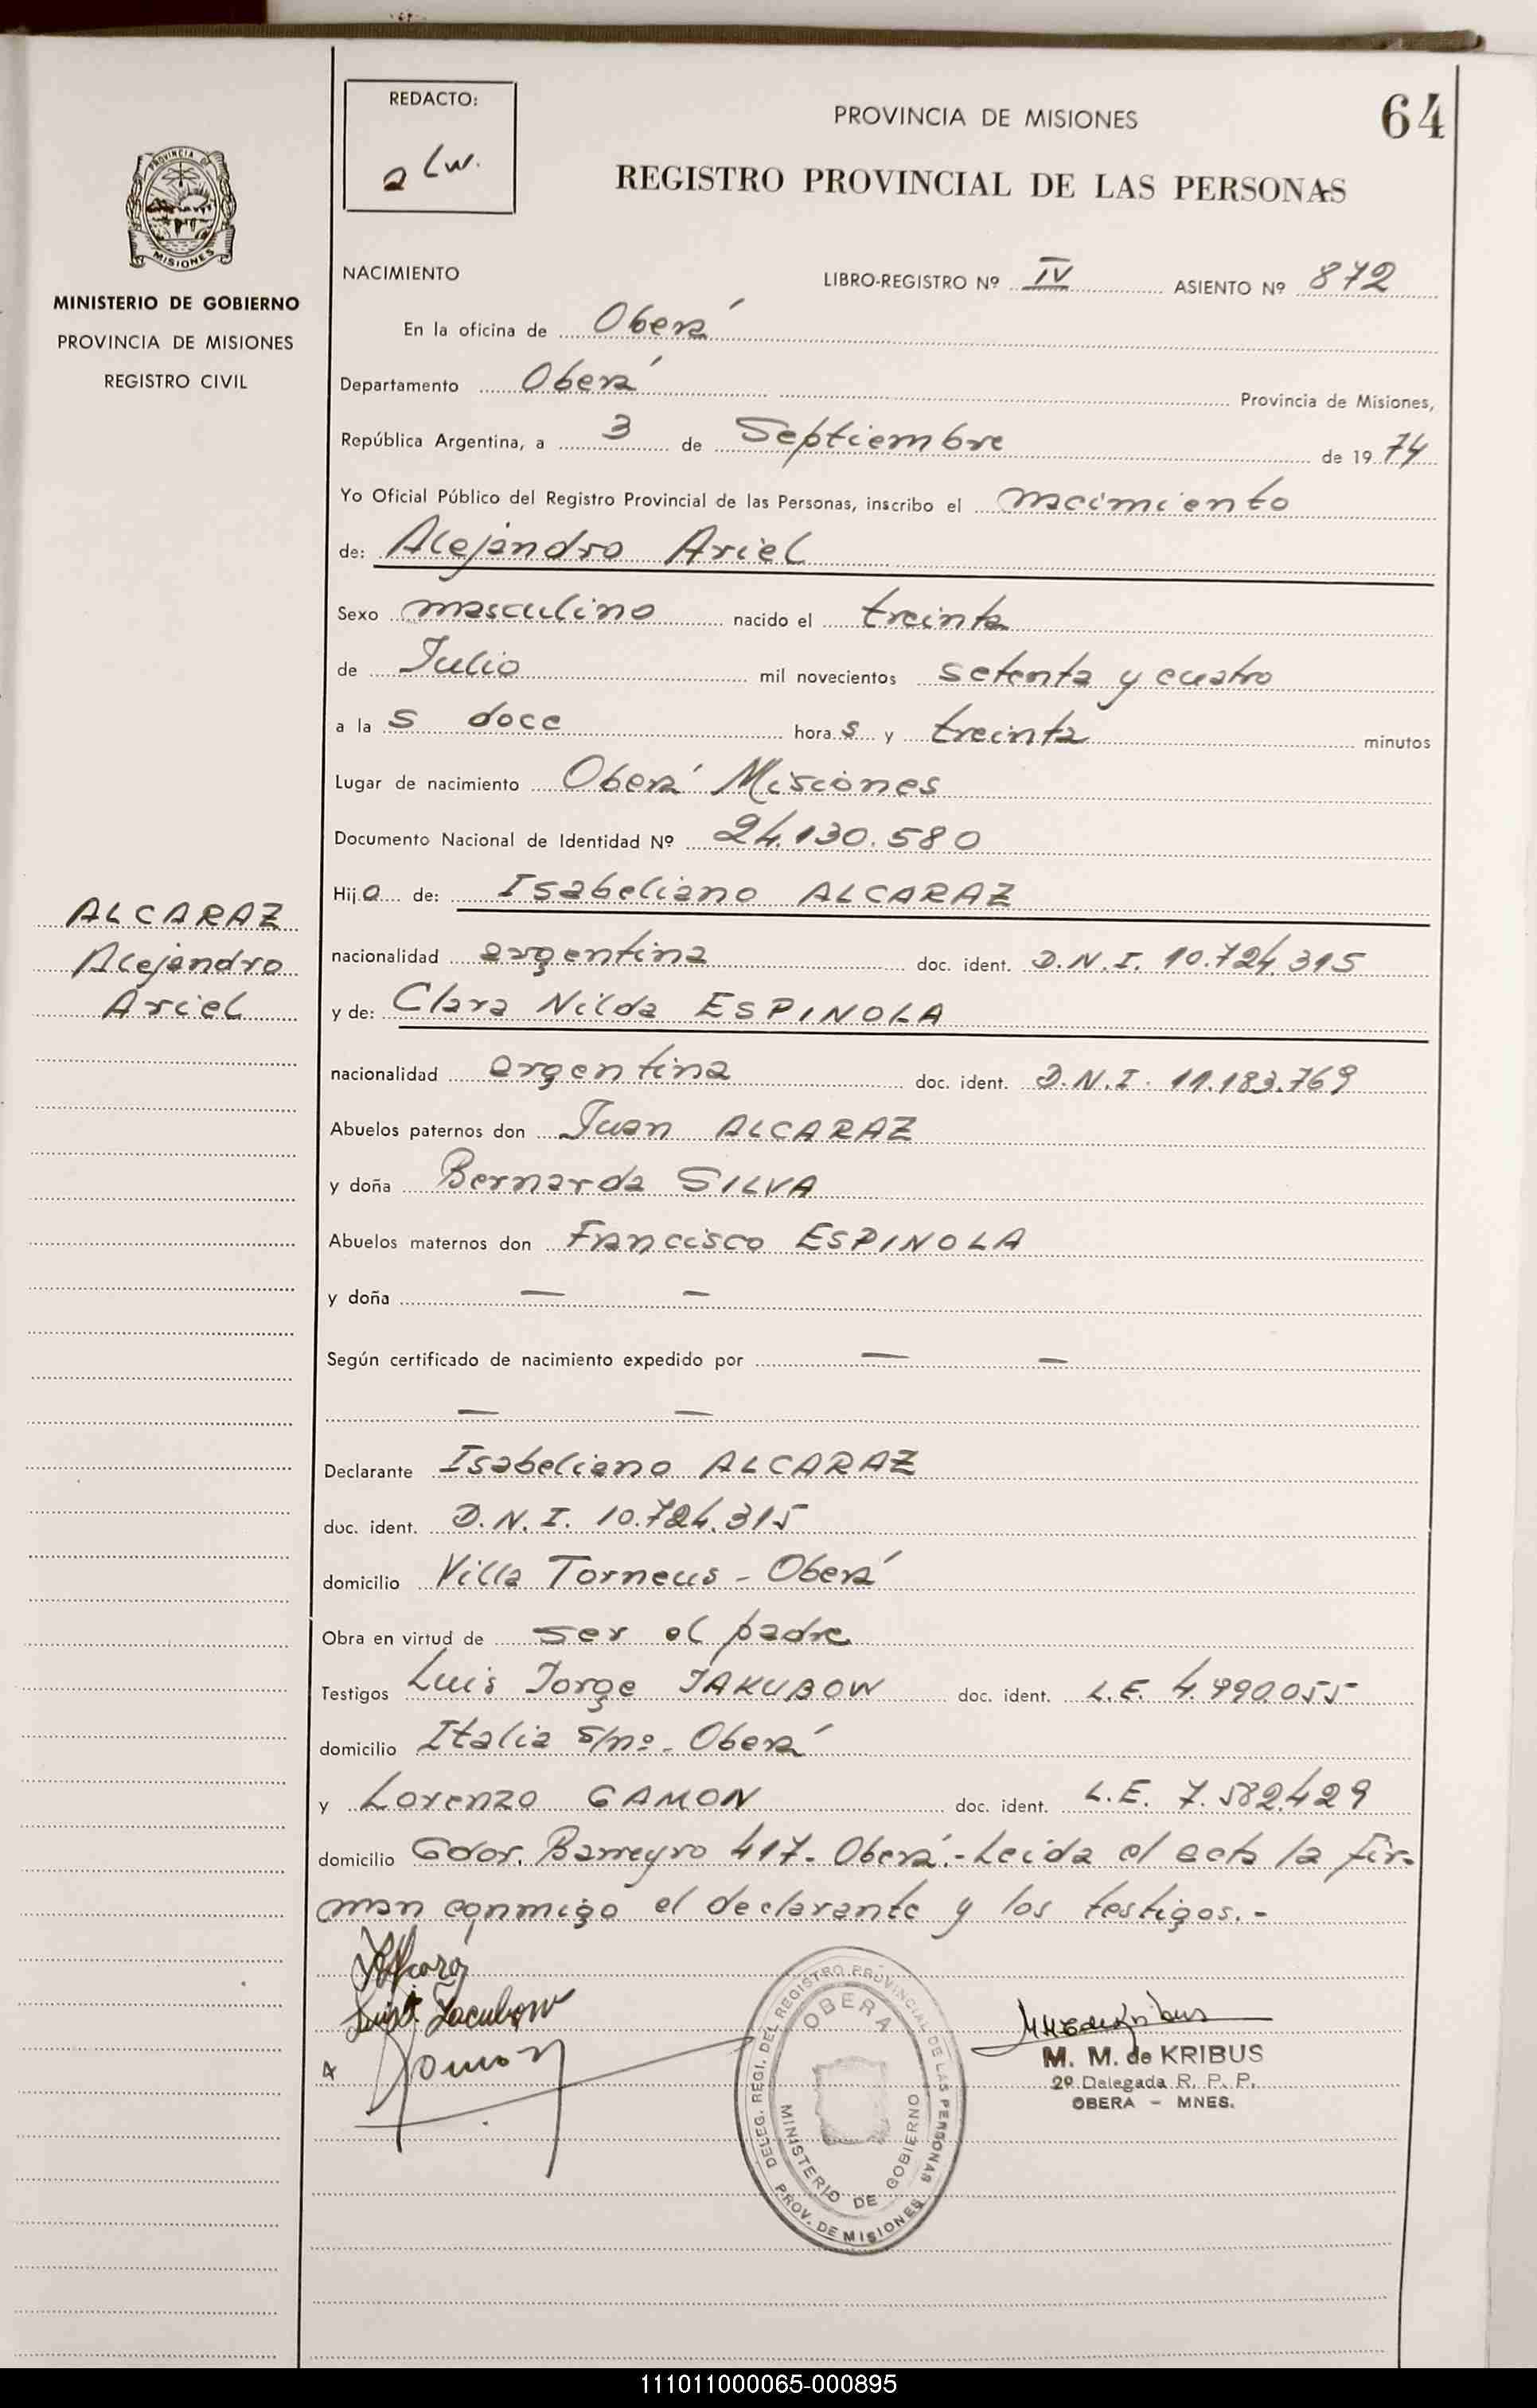 REDACTO:
PROVINCIA DE MISIONES
64
REGISTRO PROVINCIAL DE LAS PERSONAS
PROVINCIA DE
MISIONES
MINISTERIO DE GOBIERNO
PROVINCIA DE MISIONES
REGISTRO CIVIL
NACIMIENTO LIBRO-REGISTRO Nº IV ASIENTO Nº 872
En la oficina de Oberá
Departamento Oberá Provincia de Misiones,
República Argentina, a 3 de Septiembre de 19 74
Yo Oficial Público del Registro Provincial de las Personas, inscribo el nacimiento
de: Alejandro Ariel
Sexo masculino nacido el treinta
de Julio mil novecientos setenta y cuatro
a la s doce hora s y treinta minutos
Lugar de nacimiento Oberá Misiones
Documento Nacional de Identidad Nº 24.130.580
Hij o de: Isabeliano ALCARAZ
ALCARAZ
Alejandro
Ariel
nacionalidad argentina doc. ident. D.N.I. 10.724.315
y de: Clara Nilda ESPINOLA
nacionalidad argentina doc. ident. D.N.I. 11.183.769
Abuelos paternos don Juan ALCARAZ
y doña Bernarda SILVA
Abuelos maternos don Francisco ESPINOLA
y doña — —
Según certificado de nacimiento expedido por — —
— —
Declarante Isabeliano ALCARAZ
doc. ident. D.N.I. 10.724.315
domicilio Villa Torneus - Oberá
Obra en virtud de ser el padre
Testigos Luis Jorge JAKUBOW doc. ident. L.E. 4.990.055
domicilio Italia s/nº - Oberá
y Lorenzo GAMON doc. ident. L.E. 7.582.429
domicilio Gdor. Barreyro 417 - Oberá.- Leída el acta la fir-
man conmigo el declarante y los testigos.-
DELEG. REGI. DEL REGISTRO PROVINCIAL DE LAS PERSONAS
OBERA
MINISTERIO DE GOBIERNO
PROV. DE MISIONES
M. M. de KRIBUS
2º Delegada R. P. P.
OBERA - MNES.
111011000065-000895